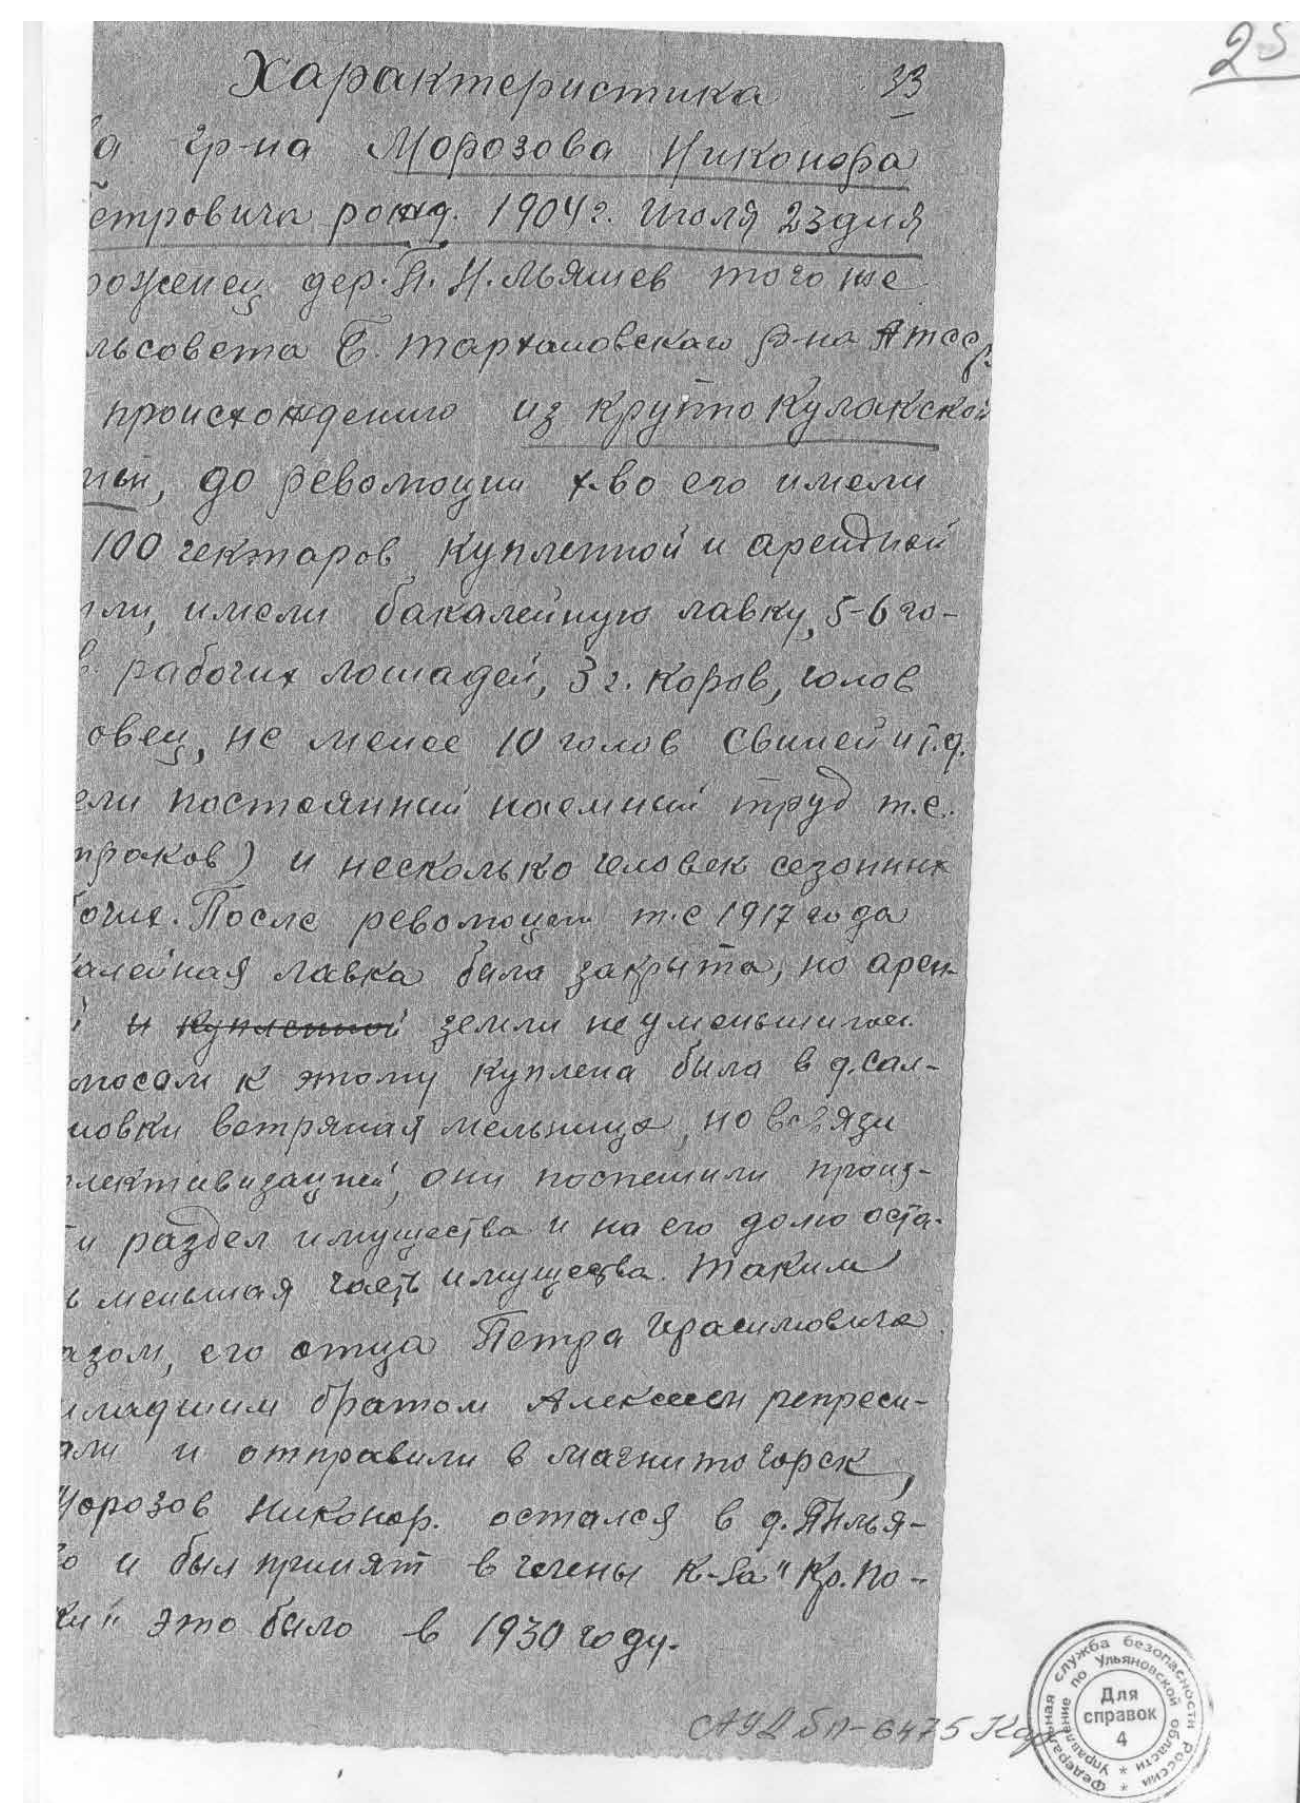 25
Характеристика 33
на гр-на Морозова Никонора
Петровича рожд. 1904 г. Июля 23 дня
роженец дер. П. Н. Мьяшев того же
льсовета Б. Тархановского р-на Атсср.
происхождению из крупно Кулакской
мьи, до революции х-во его имели
100 гектаров купленной и арендной
мли, имели бакалейную лавку, 5-6 го-
в. рабочих лошадей, 3 г. коров, голов
овец, не менее 10 голов свиней и т.д.
ели постоянний наемний труд т.е.
траков) и несколько человек сезонних
бочих. После революции т.е 1917 года
калейная лавка била закрыта, но арен-
й и купленной земли не уменьшигаси.
мосам к этому куплена была в д. Сал-
новки ветряная мельница, но в связи
лективизацией, они поспешили произ-
ти раздел имущества и на его долю оста-
ь меньшая часть имущества. Таким
азом, его отца Петра Герасимовича
младшим братом Алексеем репреси-
али и отправили в Магнитогорск,
Морозов Никонор. остался в д. ПНМья-
во и был принят в члены к-за "Кр. По-
ки" это било в 1930 году.
АУД бП-6475 Кор
Федеральная служба безопасности России
Управление по Ульяновской области
Для
справок
4